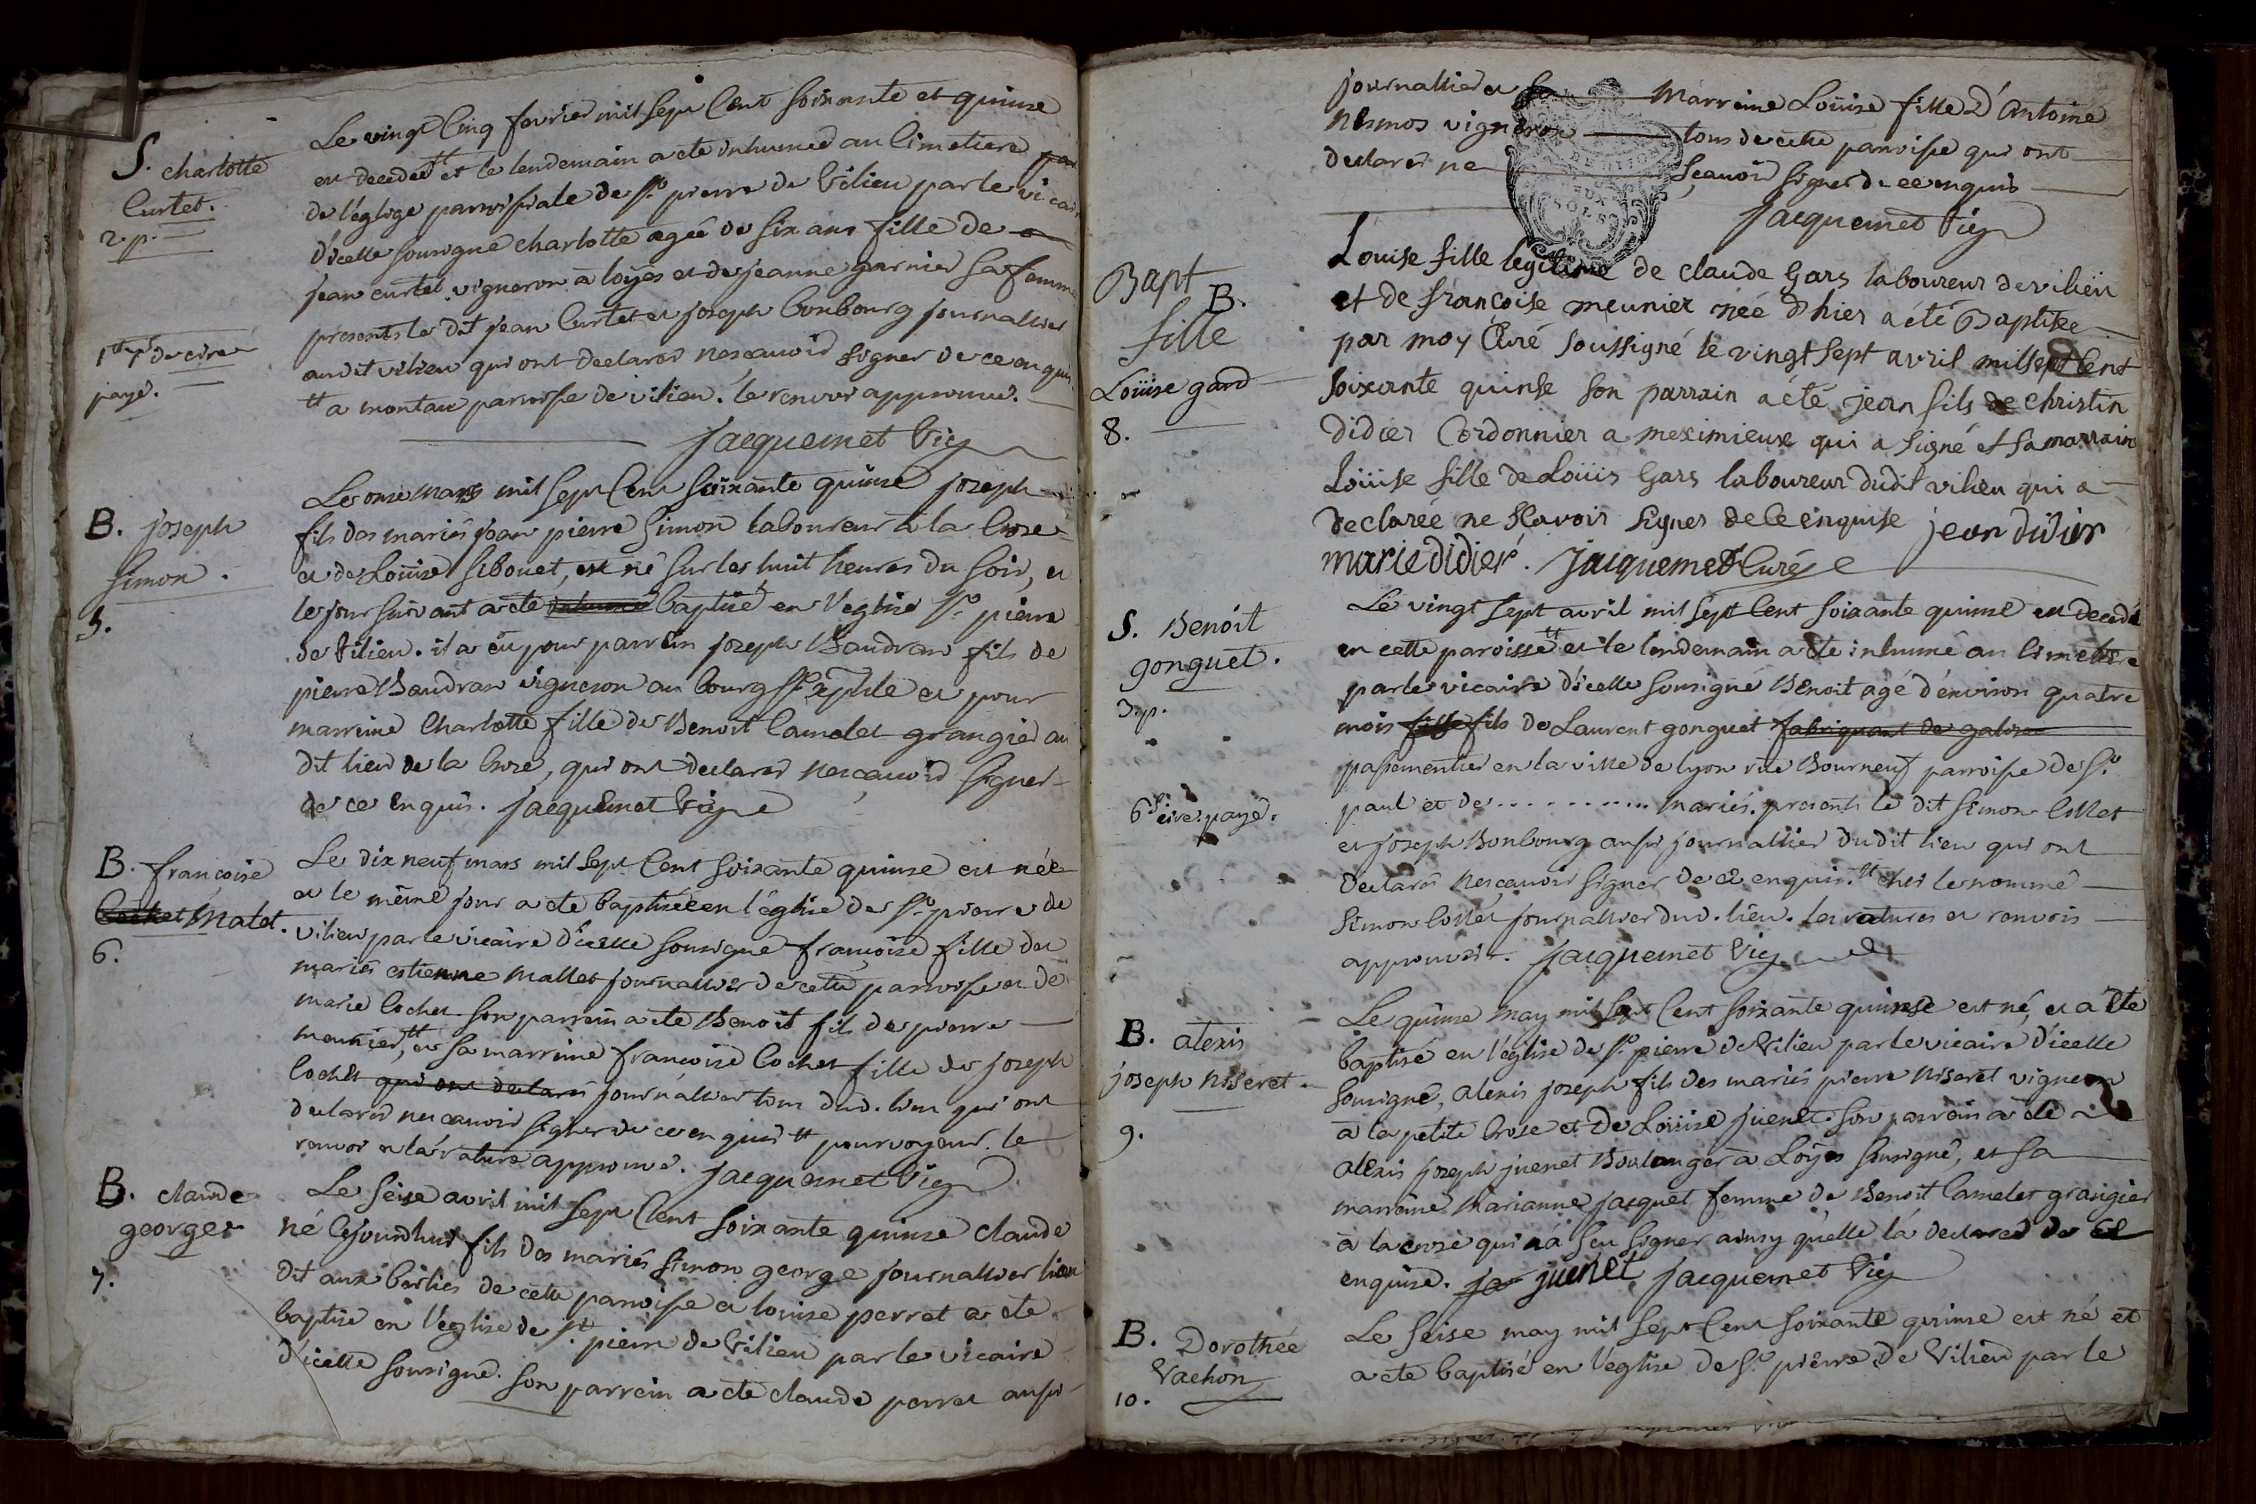 S. charlotte
Curtet.
2. p.
1 tt pr de cire
payé.
Le vingt Cinq fevrier mil sept Cent soixante et quinze
est decedée tt et le lendemain a eté inhumée au Cimetiere
de l'eglise parroissiale de St pierre de Vilieu par le vicaire
d'icelle sousigné charlotte agée de six ans fille de
jean curtet vigneron a loyes et de jeanne garnier sa femme
presents le dit jean Curtet et joseph bonbourg journallier
audit vilieu qui ont declarés ne scavoir signer de ce enquis
tt a montau parroisse de vilieu. le renvoi approuvé.
Jacquemet Vic
B. joseph
Simon.
5.
Le onze mars mil sept Cent soixante quinze joseph
fils des mariés jean pierre Simon laboureur a la Croze
et de Loüise Sibouet, est né sur les huit heures du soir, et
le jour suivant a eté inhumé baptisé en l'eglise St pierre
de Vilieu. il a eu pour parrein joseph Baudran fils de
pierre Baudran vigneron au bourg St xphle et pour
marreine Charlotte fille de Benoit Camelet grangier au
dit lieu de la Croze, qui ont declarés ne scavoir signer
de ce enquis. Jacquemet Vic
B. francoise
Cochet Malet.
6.
Le dix neuf mars mil sept Cent soixante quinze est née
et le même jour a eté baptisée en l'église de St pierre de
vilieu par le vicaire d'icelle sousigné francoise fille des
mariés estienne Mallet journallier de cette parroisse et de
marie Cochet. son parrein a eté Benoit fils de pierre
meunier, tt et sa marreine francoise Cochet fille de joseph
Cochet qui ont declaré journallier tous dud. lieu qui ont
declarés ne scavoir signer de ce enquis tt pourvoyeur. le
renvoi et la rature approuvé. Jacquemet Vic
B. claude
george
7.
Le seize avril mil sept Cent soixante quinze claude
né cejourdhuy fils des mariés Simon george journallier lieu
dit aux berlies de cette parroisse et louise perret a eté
baptisé en l'eglise de St pierre de Vilieu par le vicaire
d'icelle sousigné. son parrein a eté claude perret aussi
journallier et sa Marreine Loüise fille d'Antoine
Nesmos vigneron tous de cette parroisse qui ont
declarés ne sçavoir signer de ce enquis
Jacquemet Vic
Bapt
B.
fille
Loüise gard
8.
Louise fille legitime de claude Gars laboureur de vilieu
et de françoise meunier née d'hier a été Baptisée
par moy Curé soussigné le vingt sept avril mil sept Cent
soixante quinse son parrain a été jean fils de Christin
didier Cordonnier a meximieux qui a signé et sa marraine
Loüise fille de Loüis Gars laboureur dudit vilieu qui a
declarée ne scavoir signer de ce enquise jean didier
marie didier. Jacquemet Curé
S. Benoit
gonguet.
3. p.
6 s cire: payé.
Le vingt sept avril mil sept Cent soixante quinze est decedé
en cette paroisse tt et le lendemain a eté inhumé au Cimetiere
par le vicaire d'icelle sousigné Benoit agé d'environ quatre
mois fille fils de Laurent gonguet fabriquant de galon
passementier en la ville de lyon rüe Bourneuf parroisse de St
paul et de . . . . . . . . . . . mariés. presents le dit Simon Collet
et joseph Bonbourg aussi journallier dudit lieu qui ont
declarés ne scavoir signer de ce enquis. tt ches le nommé
Simon Collet journallier dud. lieu. les ratures et renvois
approuvés. Jacquemet Vic
B. alexis
joseph Niseret.
9.
Le quinze may mil sept Cent soixante quinze est né, et a eté
baptisé en l'église de St pierre de Vilieu par le vicaire d'icelle
sousigné, alexis joseph fils des mariés pierre Niseret vigneron
a la petite Crose et de Loüise juenet. son parrein a eté
alexis joseph juenet Boulanger a Loyes sousigné, et sa
marreine Marianne jacquet femme de Benoit Camelet grangier
a la croze qui n'a sçu signer ainsy qu'elle l'a declaree de ce
enquise. ja juenet Jacquemet Vic
B. Dorothée
Vachon
10.
Le seise may mil sept Cent soixante quinze est né et
a eté baptisé en l'église de St pierre de Vilieu par le